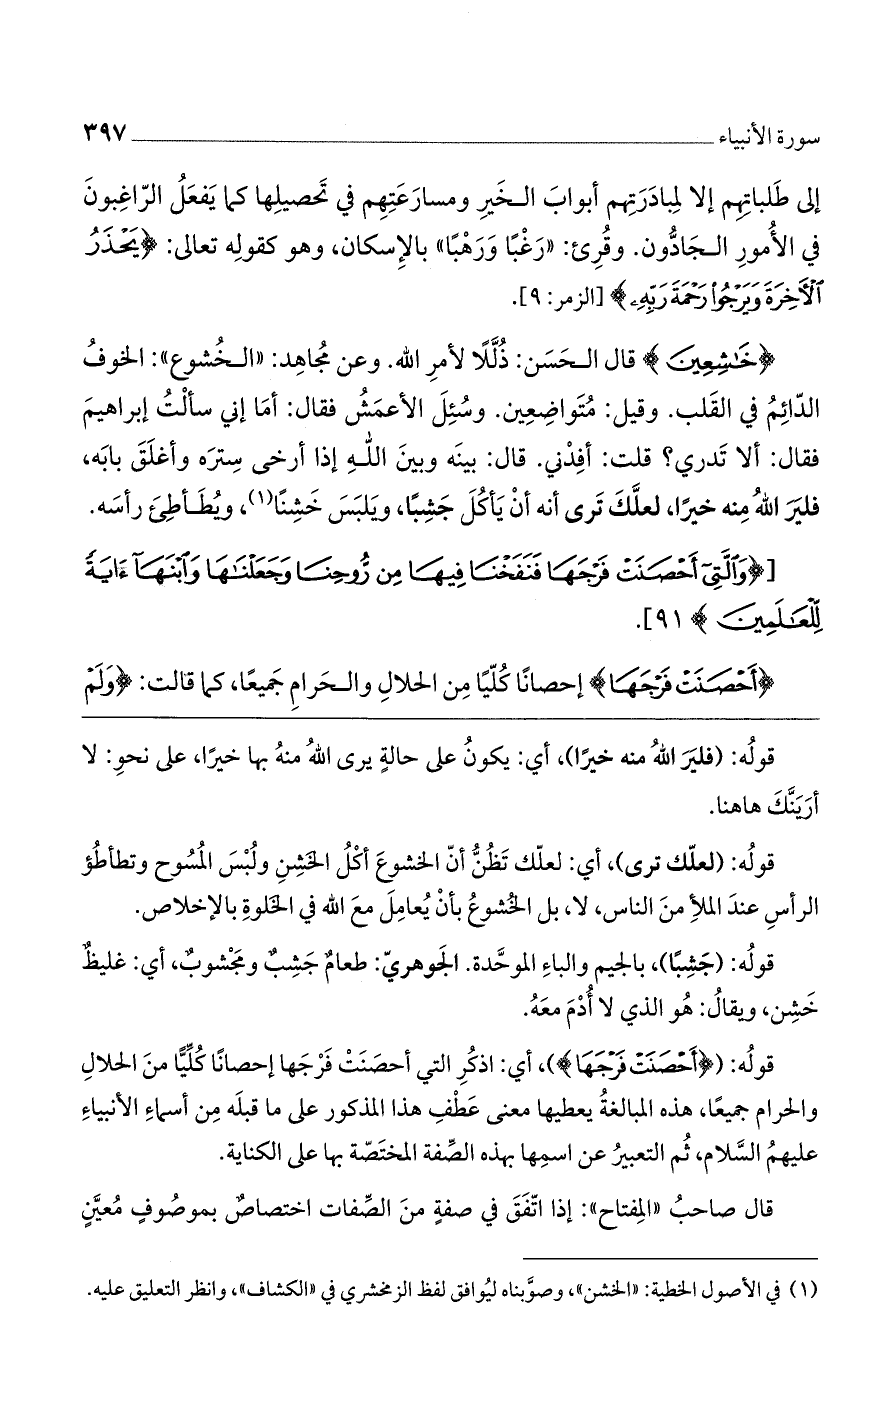 سورة الأنبياء ٣٩٧
إلى طَلباتِهِم إلا لمِبادَرَتِهِم أبوابَ الـخَيرِ ومسارَعَتِهِم في تَحصيلِها كما يَفعَلُ الرّاغِبونَ
في الأُمورِ الـجَادُّون. وقُرِئ: «رَغْبًا وَرَهْبًا» بالإسكان، وهو كقولِه تعالى: ﴿يَحْذَرُ
ٱلْآخِرَةَ وَيَرْجُوا۟ رَحْمَةَ رَبِّهِۦ﴾ [الزمر: ٩].
﴿خَـٰشِعِينَ﴾ قال الـحَسَن: ذُلَّلًا لأمرِ الله. وعن مُجاهِد: «الـخُشوع»: الخوفُ
الدّائِمُ في القَلب. وقيل: مُتَواضِعِين. وسُئِلَ الأعمَشُ فقال: أمَا إني سألْتُ إبراهيمَ
فقال: ألا تَدري؟ قلت: أفِدْني. قال: بينَه وبينَ اللهِ إذا أرخى سِترَه وأغلَقَ بابَه،
فليَرَ اللهُ مِنه خيرًا، لعلَّكَ تَرى أنه أنْ يَأكُلَ جَشِبًا، ويَلبَسَ خَشِنًا(١)، ويُطَأطِئَ رأسَه.
[﴿وَٱلَّتِىٓ أَحْصَنَتْ فَرْجَهَا فَنَفَخْنَا فِيهَا مِن رُّوحِنَا وَجَعَلْنَـٰهَا وَٱبْنَهَآ ءَايَةً
لِّلْعَـٰلَمِينَ﴾ ٩١].
﴿أَحْصَنَتْ فَرْجَهَا﴾ إحصانًا كُلّيًا مِن الحلالِ والـحَرامِ جَميعًا، كما قالت: ﴿وَلَمْ
قولُه: (فليَرَ اللهُ منه خيرًا)، أي: يكونُ على حالةٍ يرى اللهُ منهُ بها خيرًا، على نحوِ: لا
أرَيَنَّكَ هاهنا.
قولُه: (لعلّك ترى)، أي: لعلّك تَظُنُّ أنّ الخشوعَ أكْلُ الخَشِنِ ولُبْسَ المُسُوح وتطأطُؤ
الرأسِ عندَ الملأِ منَ الناس، لا، بل الخُشوعُ بأنْ يُعامِلَ معَ الله في الخلوةِ بالإخلاص.
قولُه: (جَشِبًا)، بالجيم والباءِ الموحَّدة. الجَوهريّ: طعامٌ جَشِبٌ ومَجْشوبٌ، أي: غليظٌ
خَشِن، ويقالُ: هُو الذي لا أُدْمَ معَهُ.
قولُه: (﴿أَحْصَنَتْ فَرْجَهَا﴾)، أي: اذكُرِ التي أحصَنَتْ فَرْجَها إحصانًا كُلِّيًّا منَ الحلالِ
والحرام جميعًا، هذه المبالغةُ يعطيها معنى عَطْفِ هذا المذكور على ما قبلَه مِن أسماءِ الأنبياءِ
عليهمُ السَّلام، ثُم التعبيرُ عن اسمِها بهذه الصِّفة المختَصّة بها على الكناية.
قال صاحبُ «المِفتاح»: إذا اتّفَقَ في صفةٍ منَ الصِّفات اختصاصٌ بموصُوفٍ مُعيَّنٍ
(١) في الأصول الخطية: «الخشن»، وصوَّبناه ليُوافق لفظ الزمخشري في «الكشاف»، وانظر التعليق عليه.